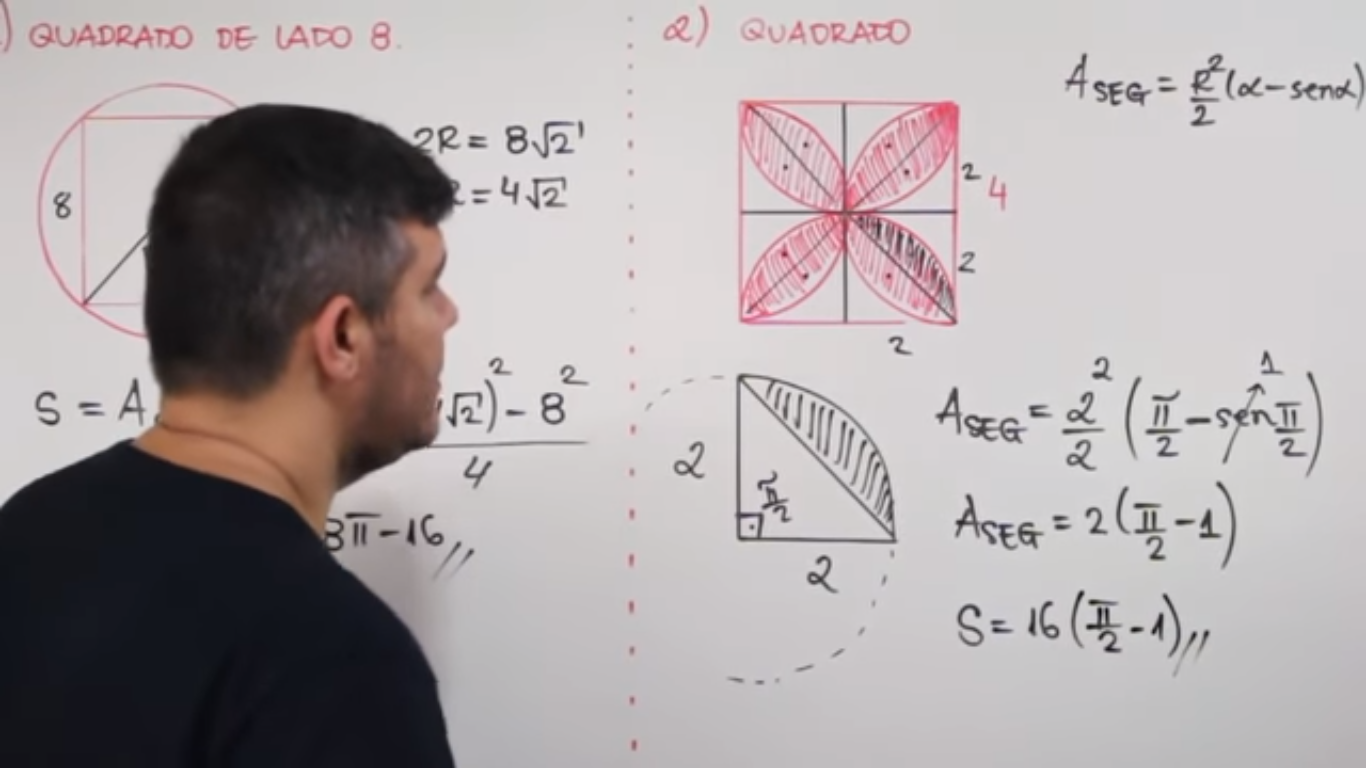 ) QUADRADO DE LADO 8.
8
2R = 8√2
R = 4√2
S = A
√2)² - 8²
4
8π - 16,,
2) QUADRADO
2
4
2
2
A SEG = R²/2 (α - senα)
2
π/2
2
A SEG = 2²/2 (π/2 - sen π/2)
1
A SEG = 2 (π/2 - 1)
S = 16 (π/2 - 1),,